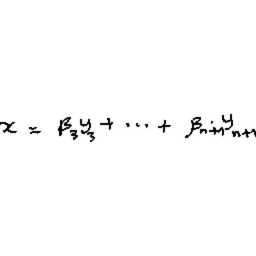 x = β₃y₃ + ⋯ + βₙ₊₁yₙ₊₁